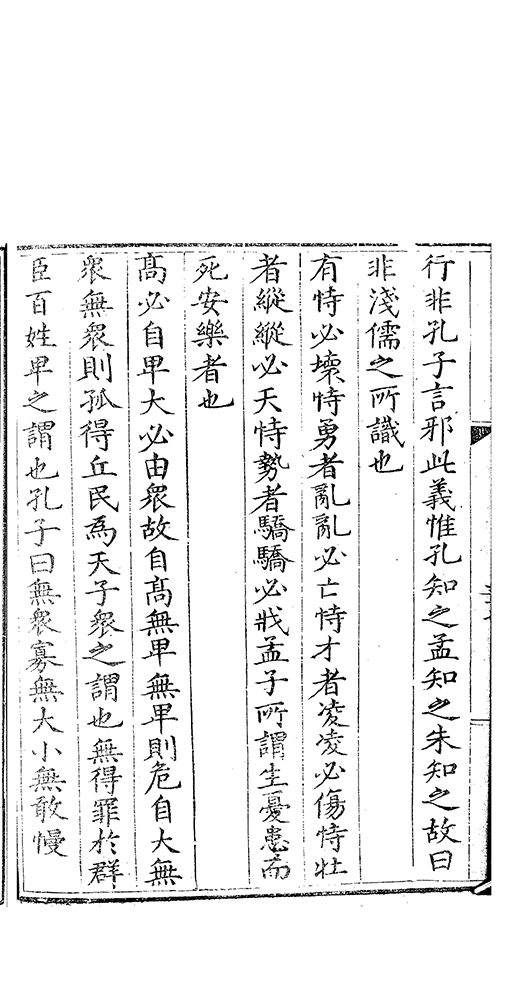 行非孔子言邪此義惟孔知之孟知之朱知之故曰
非淺儒之所識也
有恃必壞恃勇者亂亂必亡恃才者凌凌必傷恃壯
者縱縱必夭恃勢者驕驕必戕孟子所謂生憂患而
死安樂者也
高必自卑大必由衆故自高無卑無卑則危自大無
衆無衆則孤得丘民爲天子衆之謂也無得罪於群
臣百姓卑之謂也孔子曰無衆寡無大小無敢慢